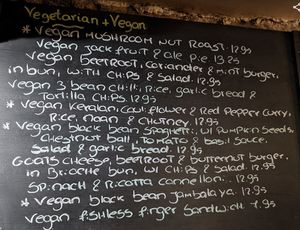 Vegetarian + Vegan
* Vegan MUSHROOM NUT ROAST. 12.95
Vegan Jack fruit & ale pie. 13.25
Vegan Beetroot, coriander & mint burger,
in bun, with chips & salad. 12.95
Vegan 3 bean chilli, Rice, garlic bread &
Tortilla chips. 12.95
* Vegan Keralan cauliflower & Red Pepper curry,
Rice, naan & chutney. 12.95
* Vegan black bean spaghetti, w/ Pumpkin seeds,
Chestnut ball, Tomato & basil sauce,
Salad & garlic bread. 12.95
Goats cheese, beetroot & butternut burger,
in Brioche bun, w/ chips & salad. 12.95
Spinach & Ricotta cannelloni. 12.95
* Vegan black bean Jambalaya. 12.95
Vegan fishless finger sandwich 7.95